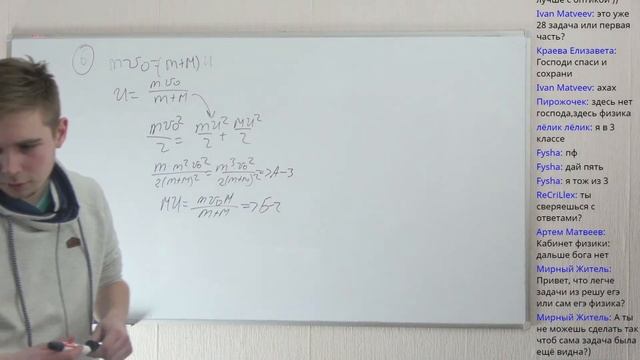 6
mv₀=(m+M)U
U= mv₀/m+M
mv₀²/2 = mU²/2 + MU²/2
m·m²v₀²/2(m+M)² = m³v₀²/2(m+M)² =>A-3
MU= mv₀M/m+M =>Б-2
лучше с оптикой ))
Ivan Matveev: это уже
28 задача или первая
часть?
Краева Елизавета:
Господи спаси и
сохрани
Ivan Matveev: ахах
Пирожочек: здесь нет
господа,здесь физика
лёлик лёлик: я в 3
классе
Fysha: пф
Fysha: дай пять
Fysha: я тож из 3
ReCriLlex: ты
сверяешься с
ответами?
Артем Матвеев:
Кабинет физики:
дальше бога нет
Мирный Житель:
Привет, что легче
задачи из решу егэ
или сам егэ физика?
Мирный Житель: А ты
не можешь сделать так
чтоб сама задача была
ещё видна?)